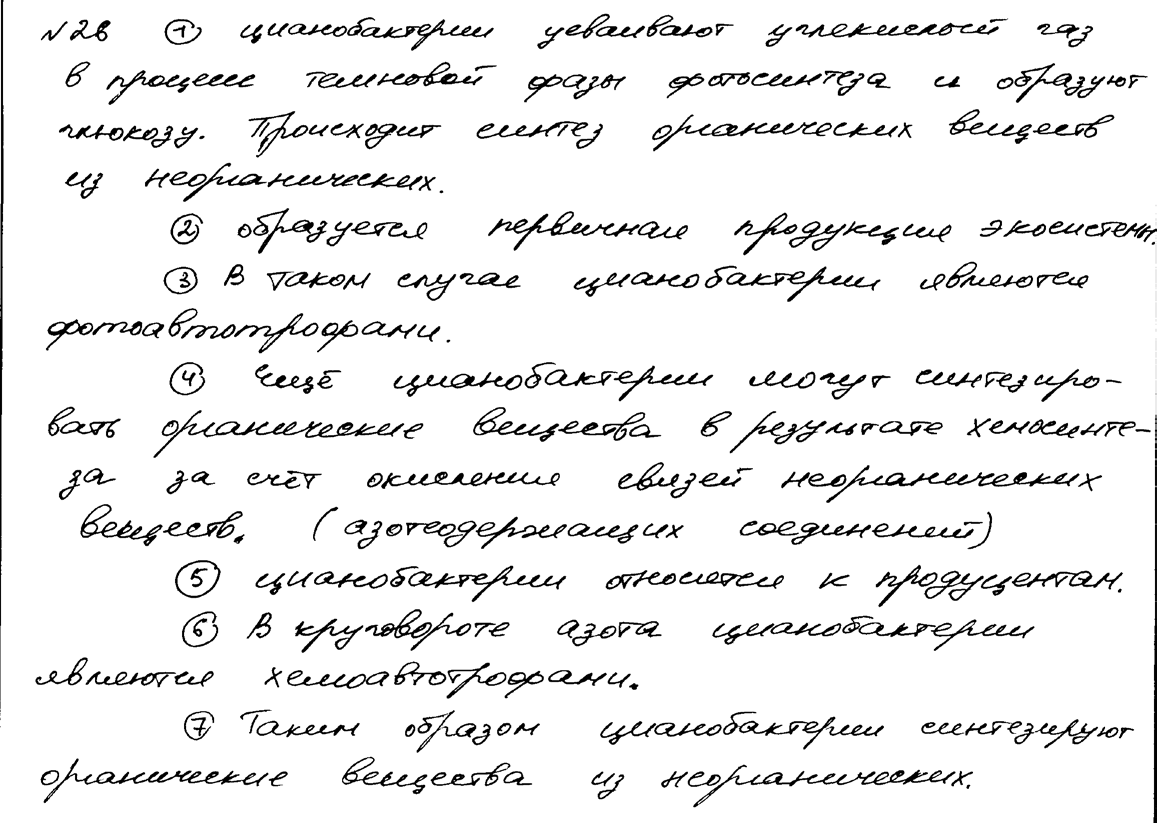 №26 ① цианобактерии усваивают углекислый газ
в процессе темновой фазы фотосинтеза и образуют
глюкозу. Происходит синтез органических веществ
из неорганических.
② образуется первичная продукция экосистемы.
③ В таком случае цианобактерии являются
фотоавтотрофами.
④ Ещё цианобактерии могут синтезиро-
вать органические вещества в результате хемосинте-
за за счёт окисления связей неорганических
веществ. (азотсодержащих соединений)
⑤ цианобактерии относятся к продуцентам.
⑥ В круговороте азота цианобактерии
являются хемоавтотрофами.
⑦ Таким образом цианобактерии синтезируют
органические вещества из неорганических.